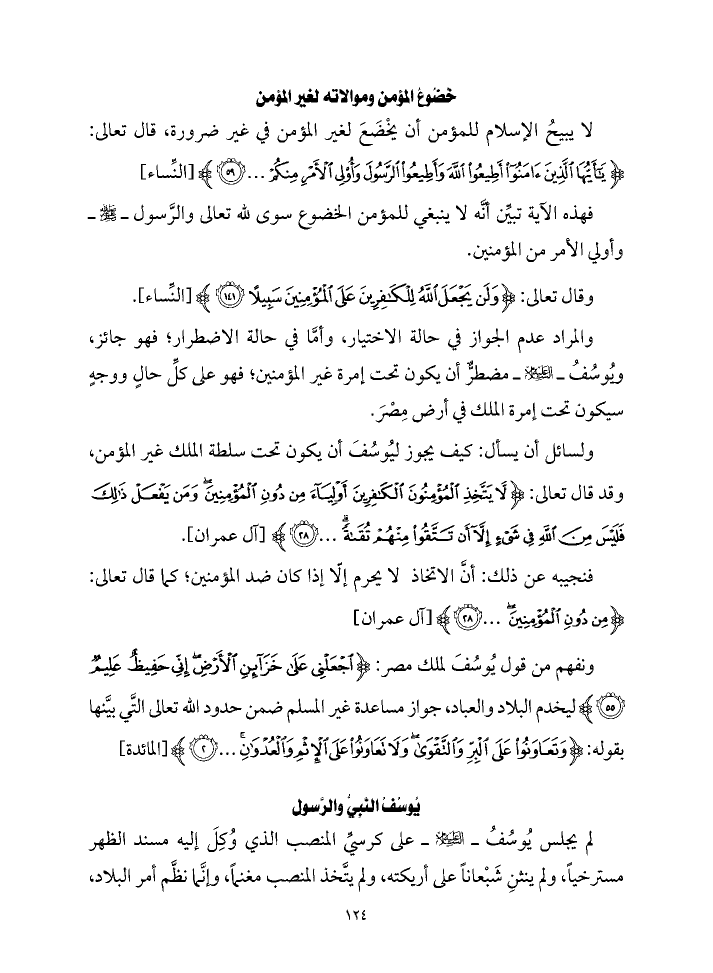 خضوعُ المؤمن وموالاته لغير المؤمن
لا يبيحُ الإسلام للمؤمن أن يخْضَعَ لغير المؤمن في غير ضرورة، قال تعالى:
﴿يَٰٓأَيُّهَا ٱلَّذِينَ ءَامَنُوٓاْ أَطِيعُواْ ٱللَّهَ وَأَطِيعُواْ ٱلرَّسُولَ وَأُوْلِي ٱلْأَمْرِ مِنكُمْ ... ۝٥٩﴾ [النِّساء]
فهذه الآية تبيِّن أنَّه لا ينبغي للمؤمن الخضوع سوى لله تعالى والرَّسول ـ ﷺ ـ
وأولي الأمر من المؤمنين.
وقال تعالى: ﴿وَلَن يَجْعَلَ ٱللَّهُ لِلْكَٰفِرِينَ عَلَى ٱلْمُؤْمِنِينَ سَبِيلًا ۝١٤١﴾ [النِّساء].
والمراد عدم الجواز في حالة الاختيار، وأمَّا في حالة الاضطرار؛ فهو جائز،
ويُوسُفُ ـ عليه السلام ـ مضطرٌّ أن يكون تحت إمرة غير المؤمنين؛ فهو على كلِّ حالٍ ووجهٍ
سيكون تحت إمرة الملك في أرض مِصْرَ.
ولسائل أن يسأل: كيف يجوز ليُوسُفَ أن يكون تحت سلطة الملك غير المؤمن،
وقد قال تعالى: ﴿لَّا يَتَّخِذِ ٱلْمُؤْمِنُونَ ٱلْكَٰفِرِينَ أَوْلِيَآءَ مِن دُونِ ٱلْمُؤْمِنِينَۖ وَمَن يَفْعَلْ ذَٰلِكَ
فَلَيْسَ مِنَ ٱللَّهِ فِي شَيْءٍ إِلَّآ أَن تَتَّقُواْ مِنْهُمْ تُقَىٰةًۗ ... ۝٢٨﴾ [آل عمران].
فنجيبه عن ذلك: أنَّ الاتخاذ لا يحرم إلّا إذا كان ضد المؤمنين؛ كما قال تعالى:
﴿مِن دُونِ ٱلْمُؤْمِنِينَۖ ... ۝٢٨﴾ [آل عمران]
ونفهم من قول يُوسُفَ لملك مصر: ﴿ٱجْعَلْنِي عَلَىٰ خَزَآئِنِ ٱلْأَرْضِۖ إِنِّي حَفِيظٌ عَلِيمٌ
۝٥٥﴾ ليخدم البلاد والعباد، جواز مساعدة غير المسلم ضمن حدود الله تعالى التَّي بيَّنها
بقوله: ﴿وَتَعَاوَنُواْ عَلَى ٱلْبِرِّ وَٱلتَّقْوَىٰۖ وَلَا تَعَاوَنُواْ عَلَى ٱلْإِثْمِ وَٱلْعُدْوَٰنِۚ ... ۝٢﴾ [المائدة]
يُوسُفُ النَّبيُّ والرَّسول
لم يجلس يُوسُفُ ـ عليه السلام ـ على كرسيِّ المنصب الذي وُكِلَ إليه مسند الظهر
مسترخياً، ولم ينثنِ شَبْعاناً على أريكته، ولم يتَّخذ المنصب مغنماً، وإنَّما نظَّم أمر البلاد،
١٢٤